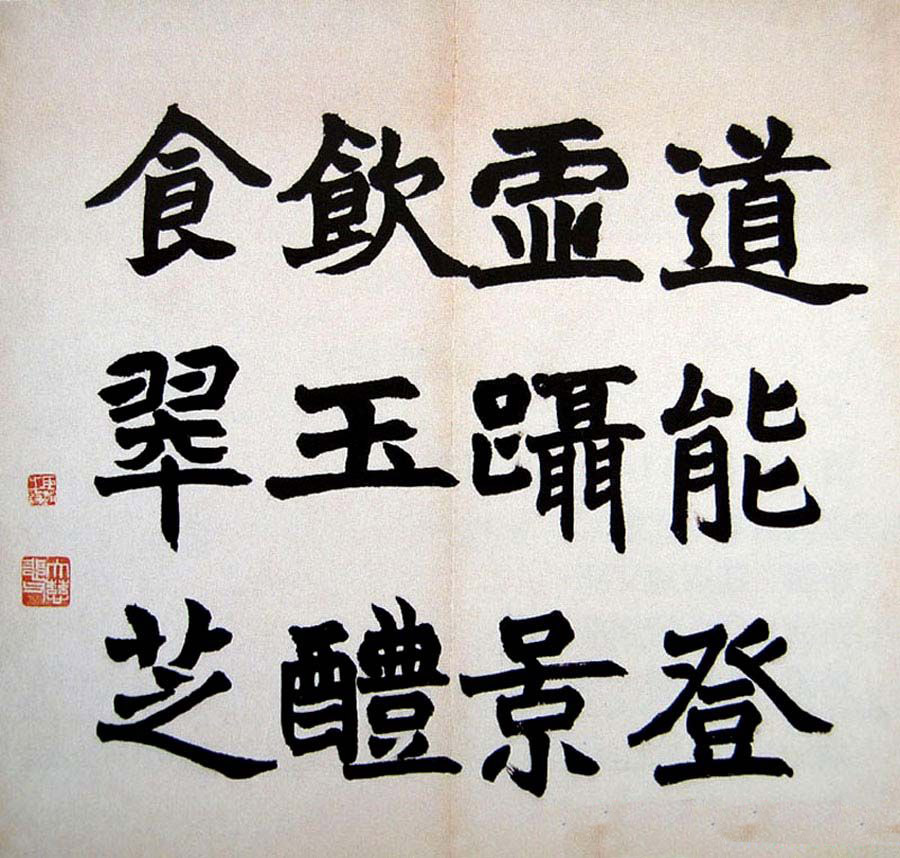 道能登
霊躡景
飲玉醴
食翠芝